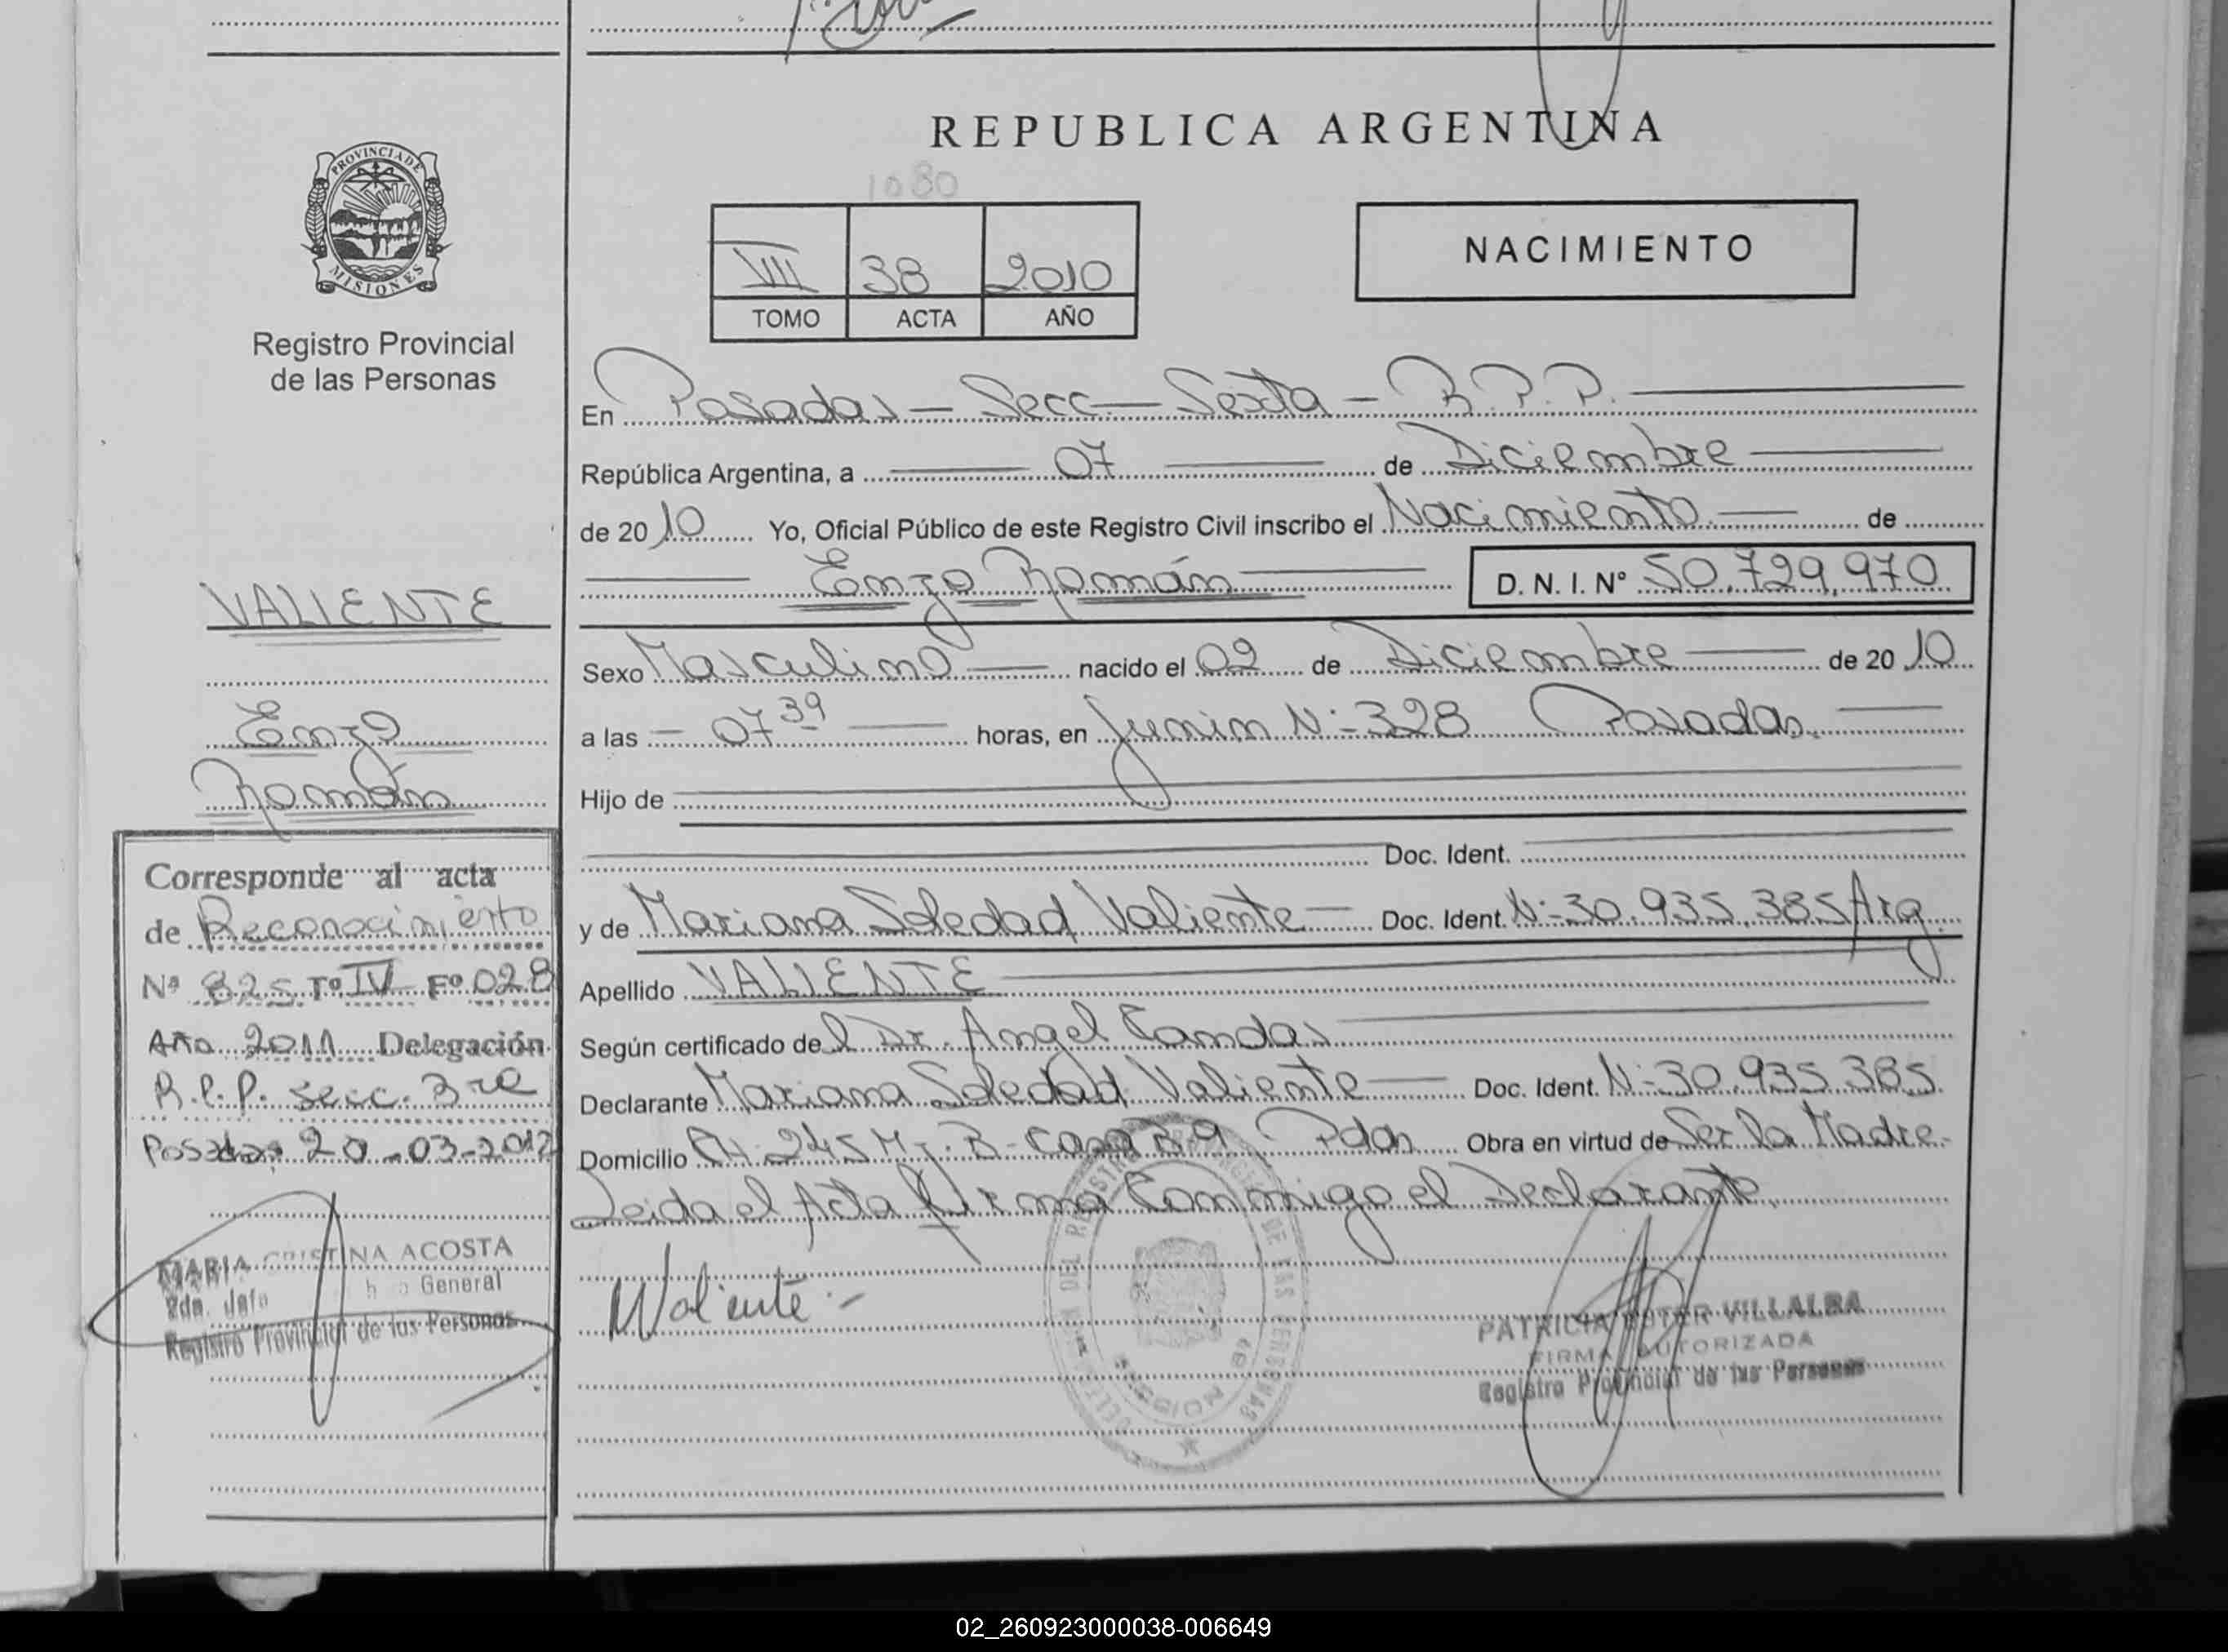 REPUBLICA ARGENTINA
1080
PROVINCIA DE
MISIONES
Registro Provincial
de las Personas
VII 38 2010
TOMO ACTA AÑO
NACIMIENTO
En Posadas - Secc - Sexta - R.P.P.
República Argentina, a 07 de Diciembre
de 2010 Yo, Oficial Público de este Registro Civil inscribo el Nacimiento de
Enzo Román D. N. I. Nº 50.729.970
Sexo Masculino nacido el 02 de Diciembre de 2010
a las - 07 39 horas, en Junin N:- 328 Posadas.
Hijo de
Doc. Ident.
y de Mariana Soledad Valiente - Doc. Ident. N:- 30.935.385 Arg.
Apellido VALIENTE
Según certificado del Dr. Angel Candas
Declarante Mariana Soledad Valiente Doc. Ident. N:- 30.935.385.
Domicilio Ch. 245 Mz. B - Casa Pdas Obra en virtud de Ser la Madre.
Leida el Acta firma Conmigo el Declarante.
MValiente.-
PATRICIA VILLALBA
FIRMA AUTORIZADA
Registro Provincial de las Personas
VALIENTE
Enzo
Román
Corresponde al acta
de Reconocimiento
Nº 825 Tº IV Fº 028
Año 2011 Delegación
R.P.P. secc. 3ra
Posadas 20-03-2012
MARIA CRISTINA ACOSTA
General
Registro Provincial de las Personas
02_260923000038-006649